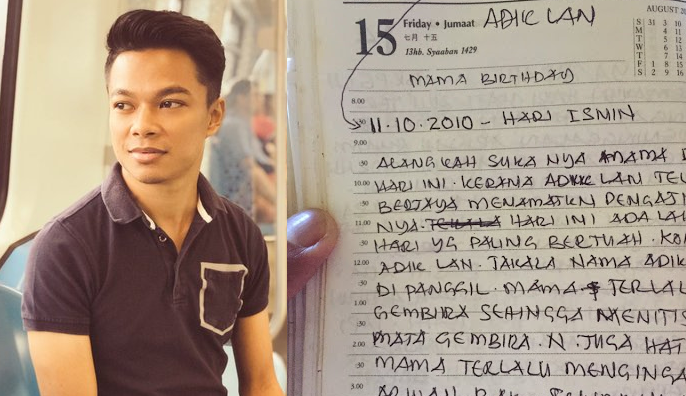 AUGUST 20
15 Friday • Jumaat ADIK LAN
七月 十五
13hb. Syaaban 1429
S 31 3 10
M 4 11
T 5 12
W 6 13
T 7 14
F 1 8 15
S 2 9 16
MAMA BIRTHDAY
8.00
:30 11.10.2010 - HARI ISNIN
9.00
:30 ALANGKAH SUKA NYA MAMA
10.00 HARI INI. KERANA ADIK LAN TEL
:30 BERJAYA MENAMATKAN PENGAJI
11.00 NYA. HARI INI ADA LAH
:30 HARI YG PALING BERTUAH. KON
12.00 ADIK LAN. TAKALA NAMA ADIK
:30 DI PANGGIL. MAMA TERLAL
1.00 GEMBIRA SEHINGGA MENITIS
:30 MATA GEMBIRA. N. JUGA HATI
2.00 MAMA TERLALU MENGINGA
3.00